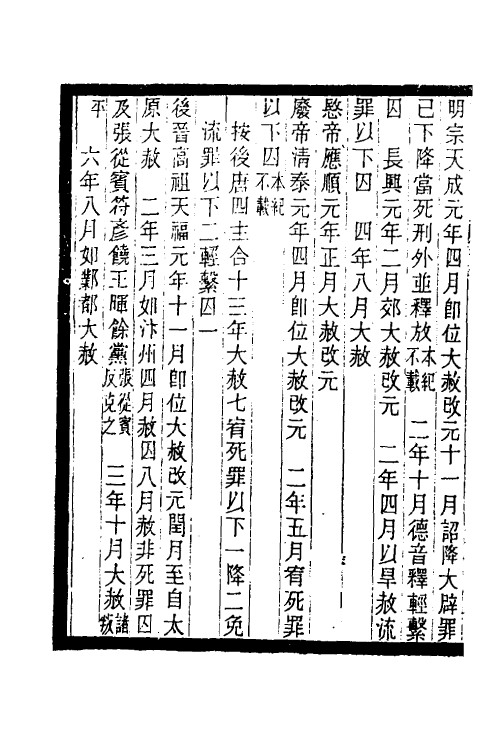 明宗天成元年四月卽位大赦改元十一月詔降大辟罪
已下降當死刑外並釋放本紀不載　二年十月德音釋輕繫
囚　長興元年二月郊大赦改元　二年四月以旱赦流
罪以下囚　四年八月大赦
愍帝應順元年正月大赦改元
廢帝淸泰元年四月卽位大赦改元　二年五月宥死罪
以下囚本紀不載
按後唐四主合十三年大赦七宥死罪以下一降二免
流罪以下二輕繫囚一
後晉高祖天福元年十一月卽位大赦改元閏月至自太
原大赦　二年三月如汴州四月赦囚八月赦非死罪囚
及張從賓符彥饒王暉餘黨張從賓反克之　三年十月大赦諸叛
平　六年八月如鄴都大赦